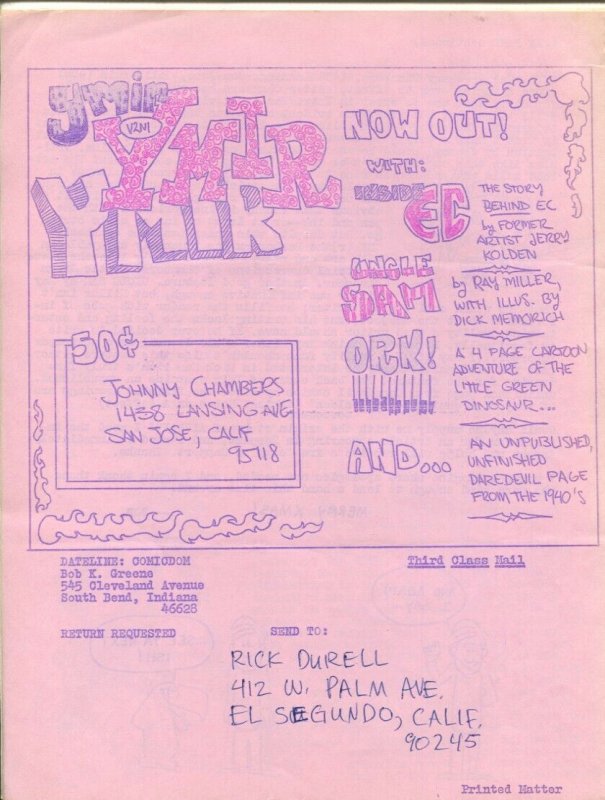 YMIR
YMIR
V2N1
YMIR
NOW OUT!
WITH:
INSIDE
EC
THE STORY
BEHIND EC
by FORMER
ARTIST JERRY
KOLDEN
UNCLE
SAM
by RAY MILLER,
WITH ILLUS. BY
DICK MEMORICH
ORK!
A 4 PAGE CARTOON
ADVENTURE OF THE
LITTLE GREEN
DINOSAUR...
AND...
AN UNPUBLISHED,
UNFINISHED
DAREDEVIL PAGE
FROM THE 1940'S
50¢
JOHNNY CHAMBERS
1438 LANSING AVE
SAN JOSE, CALIF
95118
DATELINE: COMICDOM
Bob K. Greene
545 Cleveland Avenue
South Bend, Indiana
46628
Third Class Mail
RETURN REQUESTED
SEND TO:
RICK DURELL
412 W. PALM AVE.
EL SEGUNDO, CALIF.
90245
Printed Matter